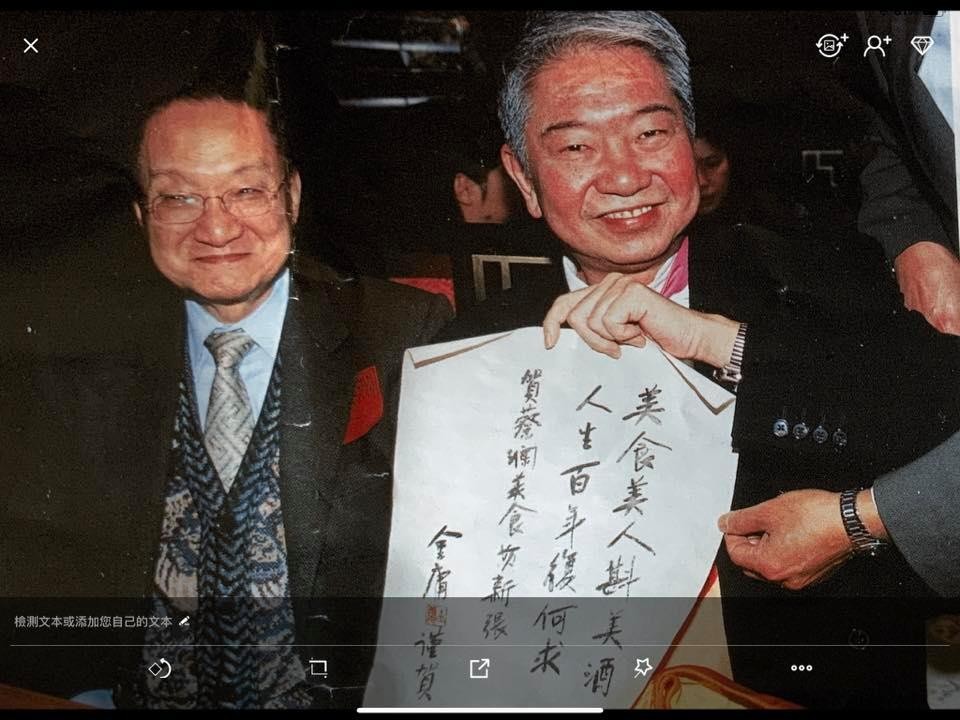 美食美人斟美酒
人生百年復何求
賀蔡瀾美食坊新張
金庸謹賀
檢測文本或添加您自己的文本